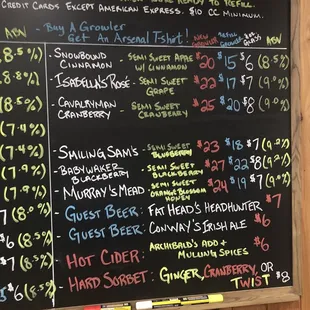 READY TO REFILL.
CREDIT CARDS EXCEPT AMERICAN EXPRESS. $10 CC MINIMUM.
- BUY A GROWLER
GET AN ARSENAL T-SHIRT! -
ABV
ABV
8.5%) - SNOWBOUND CINNAMON - SEMI SWEET APPLE W/ CINNAMON $20 $15 $6 (8.5%)
8.0%) - ISABELLA'S ROSÉ - SEMI SWEET GRAPE $22 $17 $7 (9.0%)
(8.5%) - CAVALRYMAN CRANBERRY - SEMI SWEET CRANBERRY $25 $20 $8 (9.0%)
(7.4%)
(7.4%) - SMILING SAM'S - SEMI SWEET BLUEBERRY $23 $18 $7 (9.0%)
(7.9%) - BABYWAKER BLACKBERRY - SEMI SWEET BLACKBERRY $27 $22 $8 (9%)
(7.9%) - MURRAY'S MEAD - SEMI SWEET ORANGE BLOSSOM HONEY $24 $19 $7 (9.0%)
7 (8.0%) - GUEST BEER: FAT HEAD'S HEADHUNTER $7
$6 (8.5%) - GUEST BEER: CONWAY'S IRISH ALE $6
$7 (8.5%) HOT CIDER: ARCHIBALD'S ADO + MULLING SPICES $6
$6 (8.5%) - HARD SORBET: GINGER, CRANBERRY, OR TWIST $8